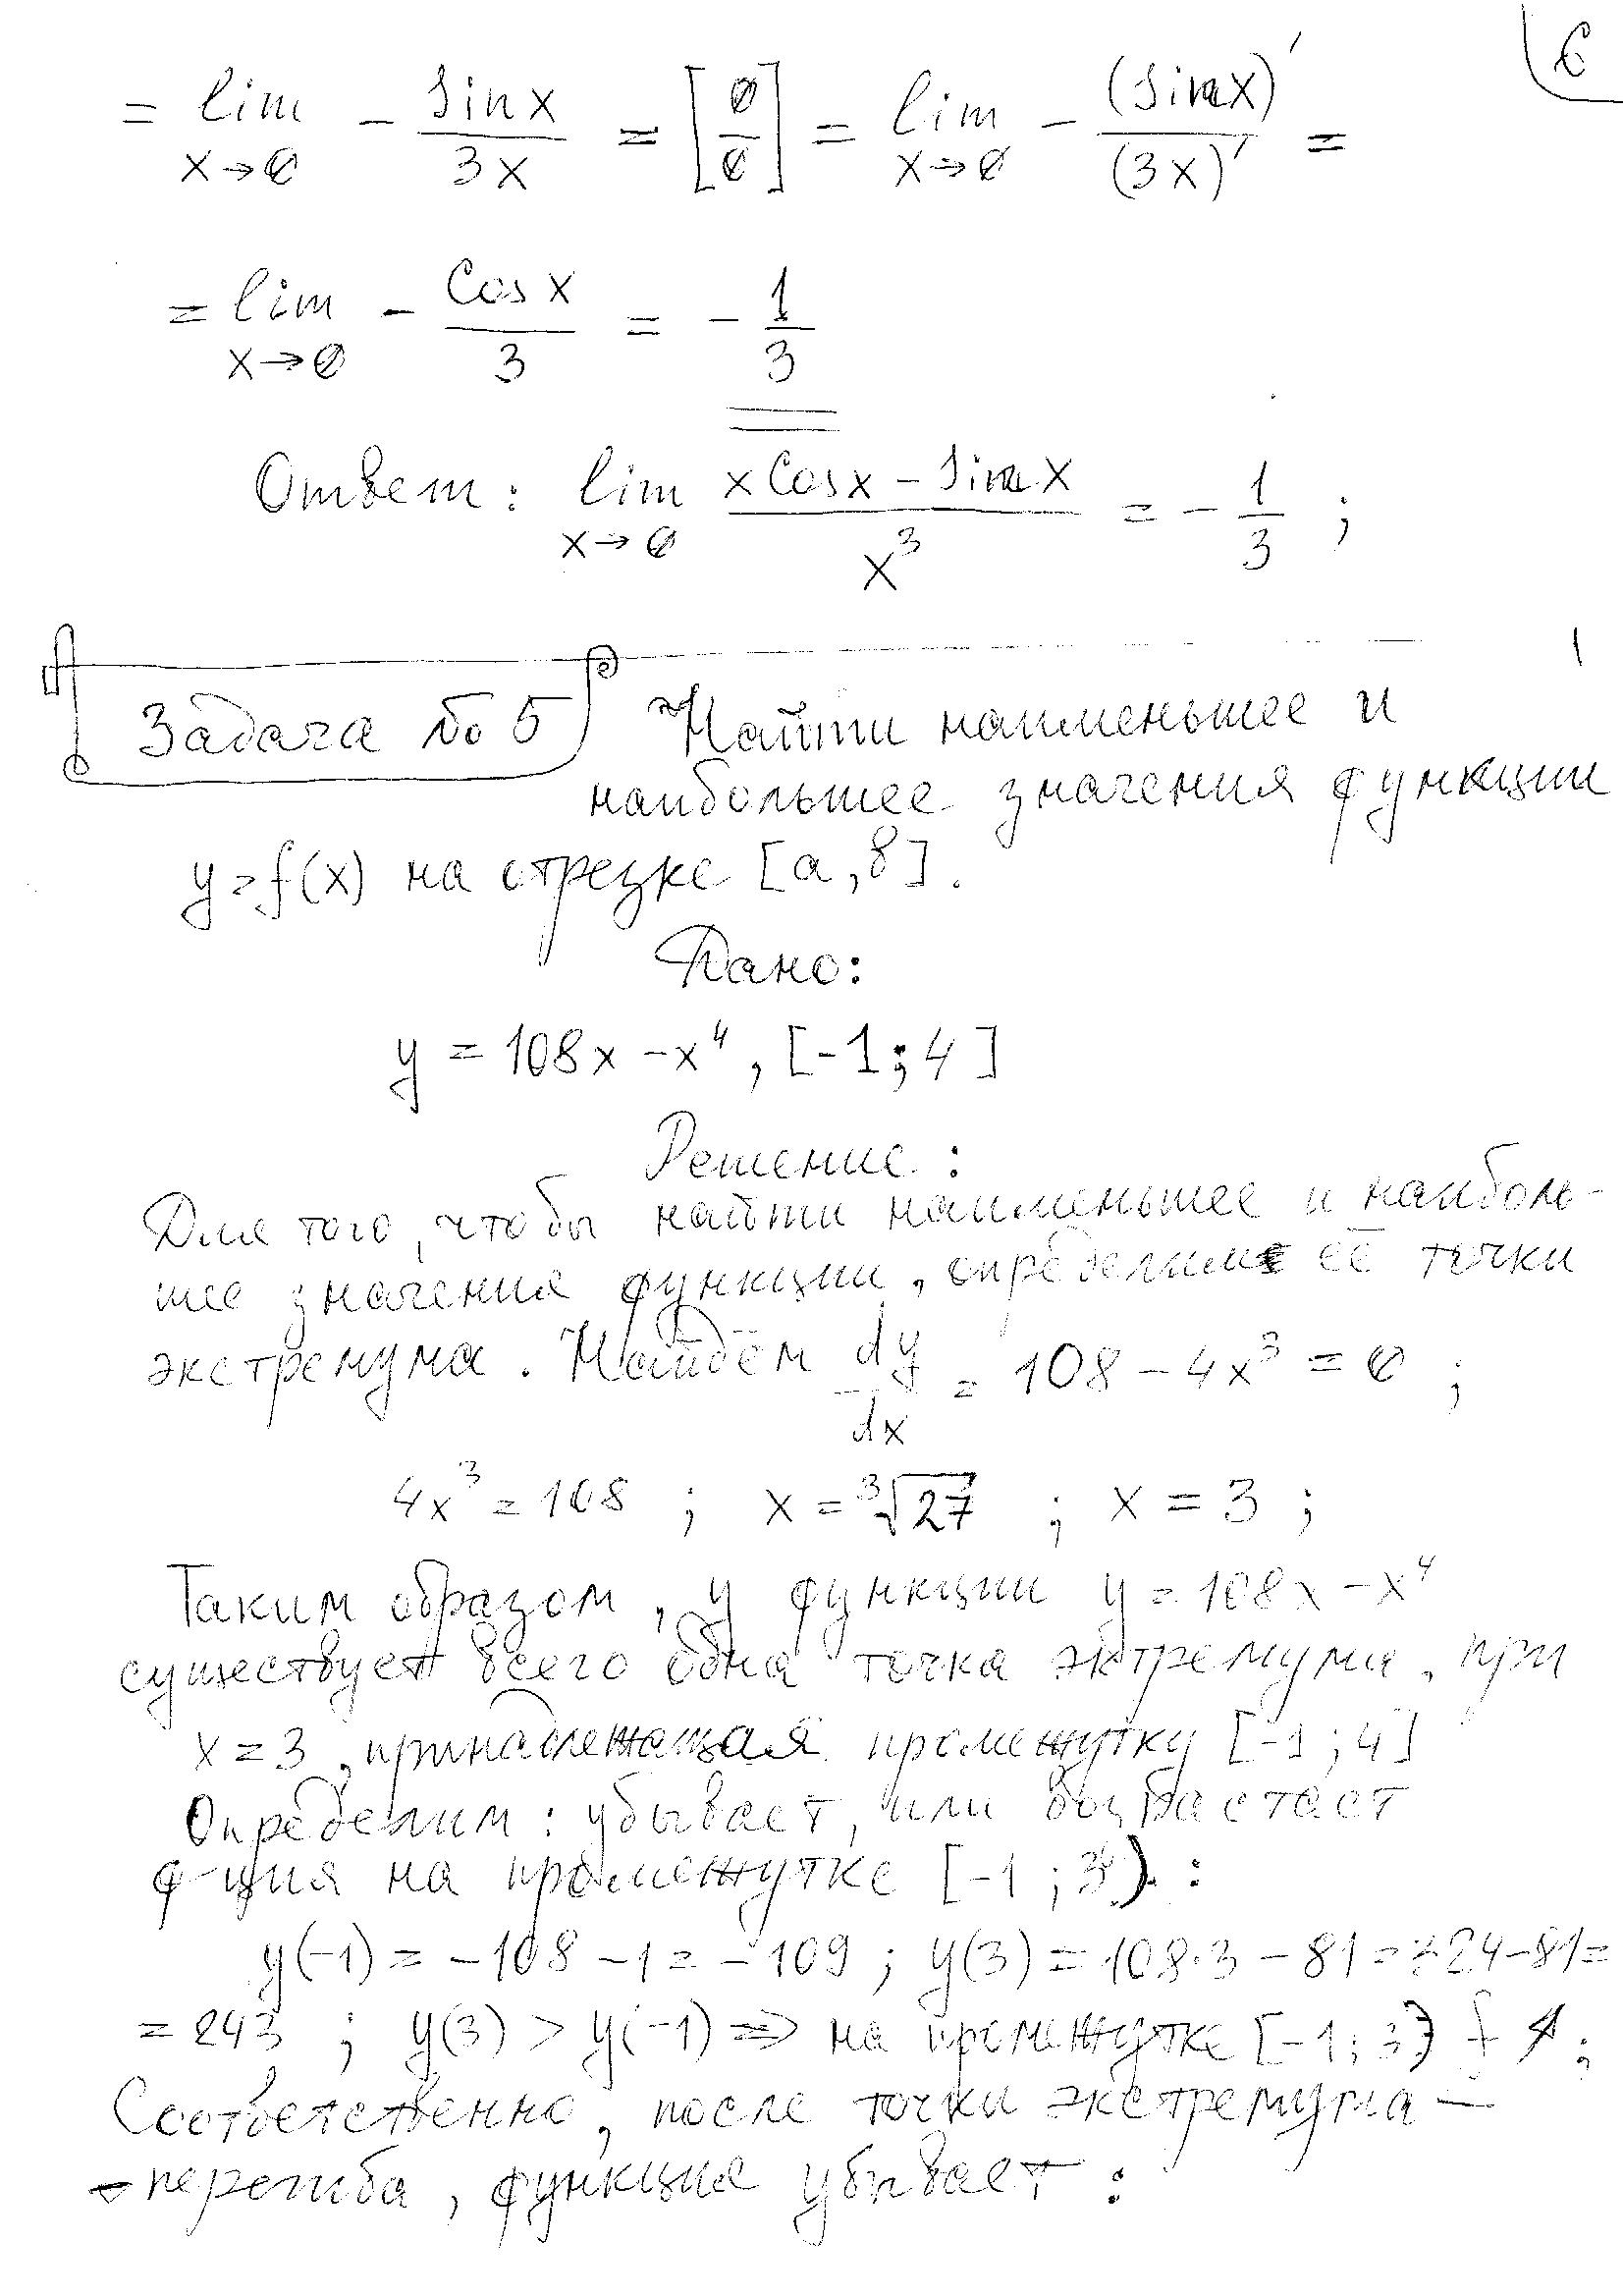 6
= lim x→0 - sin x / 3x = [0/0] = lim x→0 - (sin x)' / (3x)' =
= lim x→0 - cos x / 3 = - 1/3
Ответ: lim x→0 (x cos x - sin x) / x³ = - 1/3 ;
Задача № 5 Найти наименьшее и
наибольшее значения функции
y = f(x) на отрезке [a, b].
Дано:
y = 108x - x⁴, [-1; 4]
Решение:
Для того, чтобы найти наименьшее и наиболь-
шее значения функции, определим её точки
экстремума. Найдём dy/dx = 108 - 4x³ = 0 ;
4x³ = 108 ; x = ³√27 ; x = 3 ;
Таким образом, у функции y = 108x - x⁴
существует всего одна точка экстремума, при
x = 3, принадлежащая промежутку [-1; 4]
Определим: убывает, или возрастает
ф-ция на промежутке [-1; 3) :
y(-1) = -108 - 1 = -109 ; y(3) = 108·3 - 81 = 324 - 81 =
= 243 ; y(3) > y(-1) => на промежутке [-1; 3) f ↑ ;
Соответственно, после точки экстремума -
- перегиба, функция убывает :